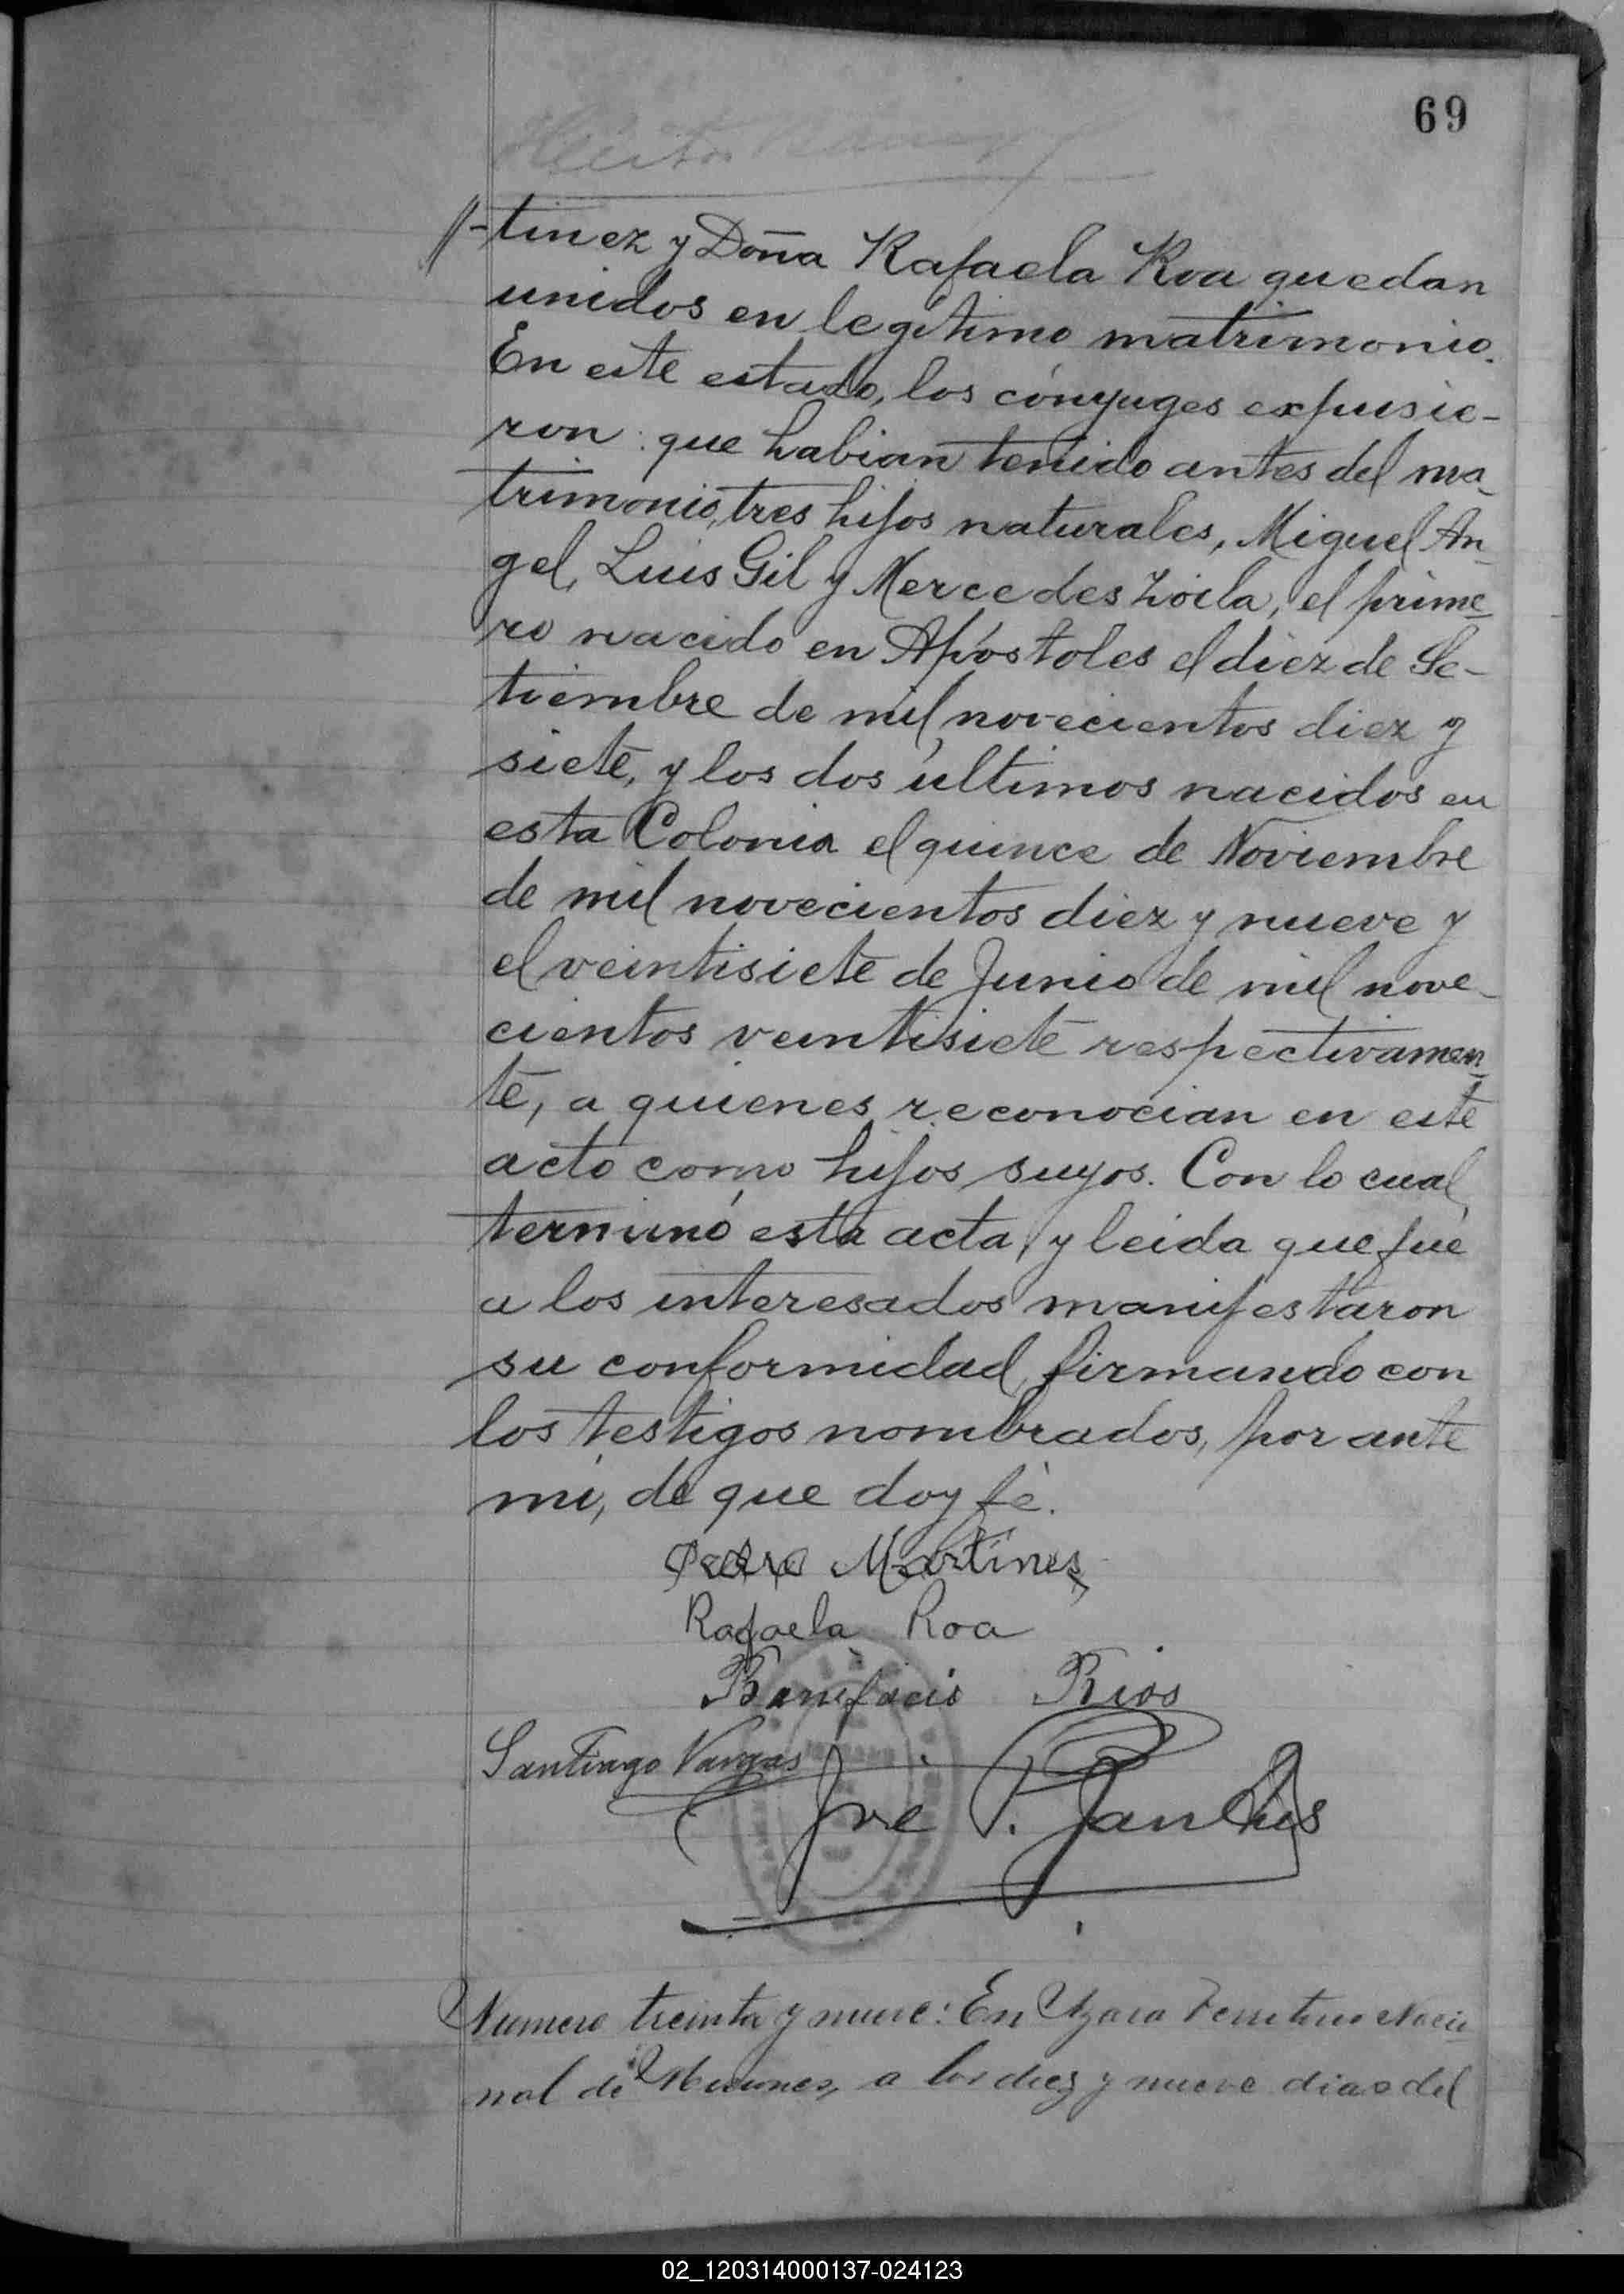 69
//-tinez y Doña Rafaela Roa quedan
unidos en legítimo matrimonio.
En este estado, los cónyuges expusie-
ron: que habian tenido antes del ma-
trimonio, tres hijos naturales, Miguel An-
gel, Luis Gil y Mercedes Zoila, el prime-
ro nacido en Apóstoles el diez de Se-
tiembre de mil novecientos diez y
siete, y los dos últimos nacidos en
esta Colonia el quince de Noviembre
de mil novecientos diez y nueve y
el veintisiete de Junio de mil nove-
cientos veintisiete respectivamen-
te, a quienes reconocian en este
acto como hijos suyos. Con lo cual
terminó esta acta, y leida que fué
a los interesados manifestaron
su conformidad, firmando con
los testigos nombrados, por ante
mí, de que doy fé.
Pedro Martines
Rafaela Roa
Bonifacio Rios
Santiago Vargas
Jose P.
Numero treinta y nueve: En Azara Territorio Nacio
nal de Misiones, a los diez y nueve dias del
02_120314000137-024123